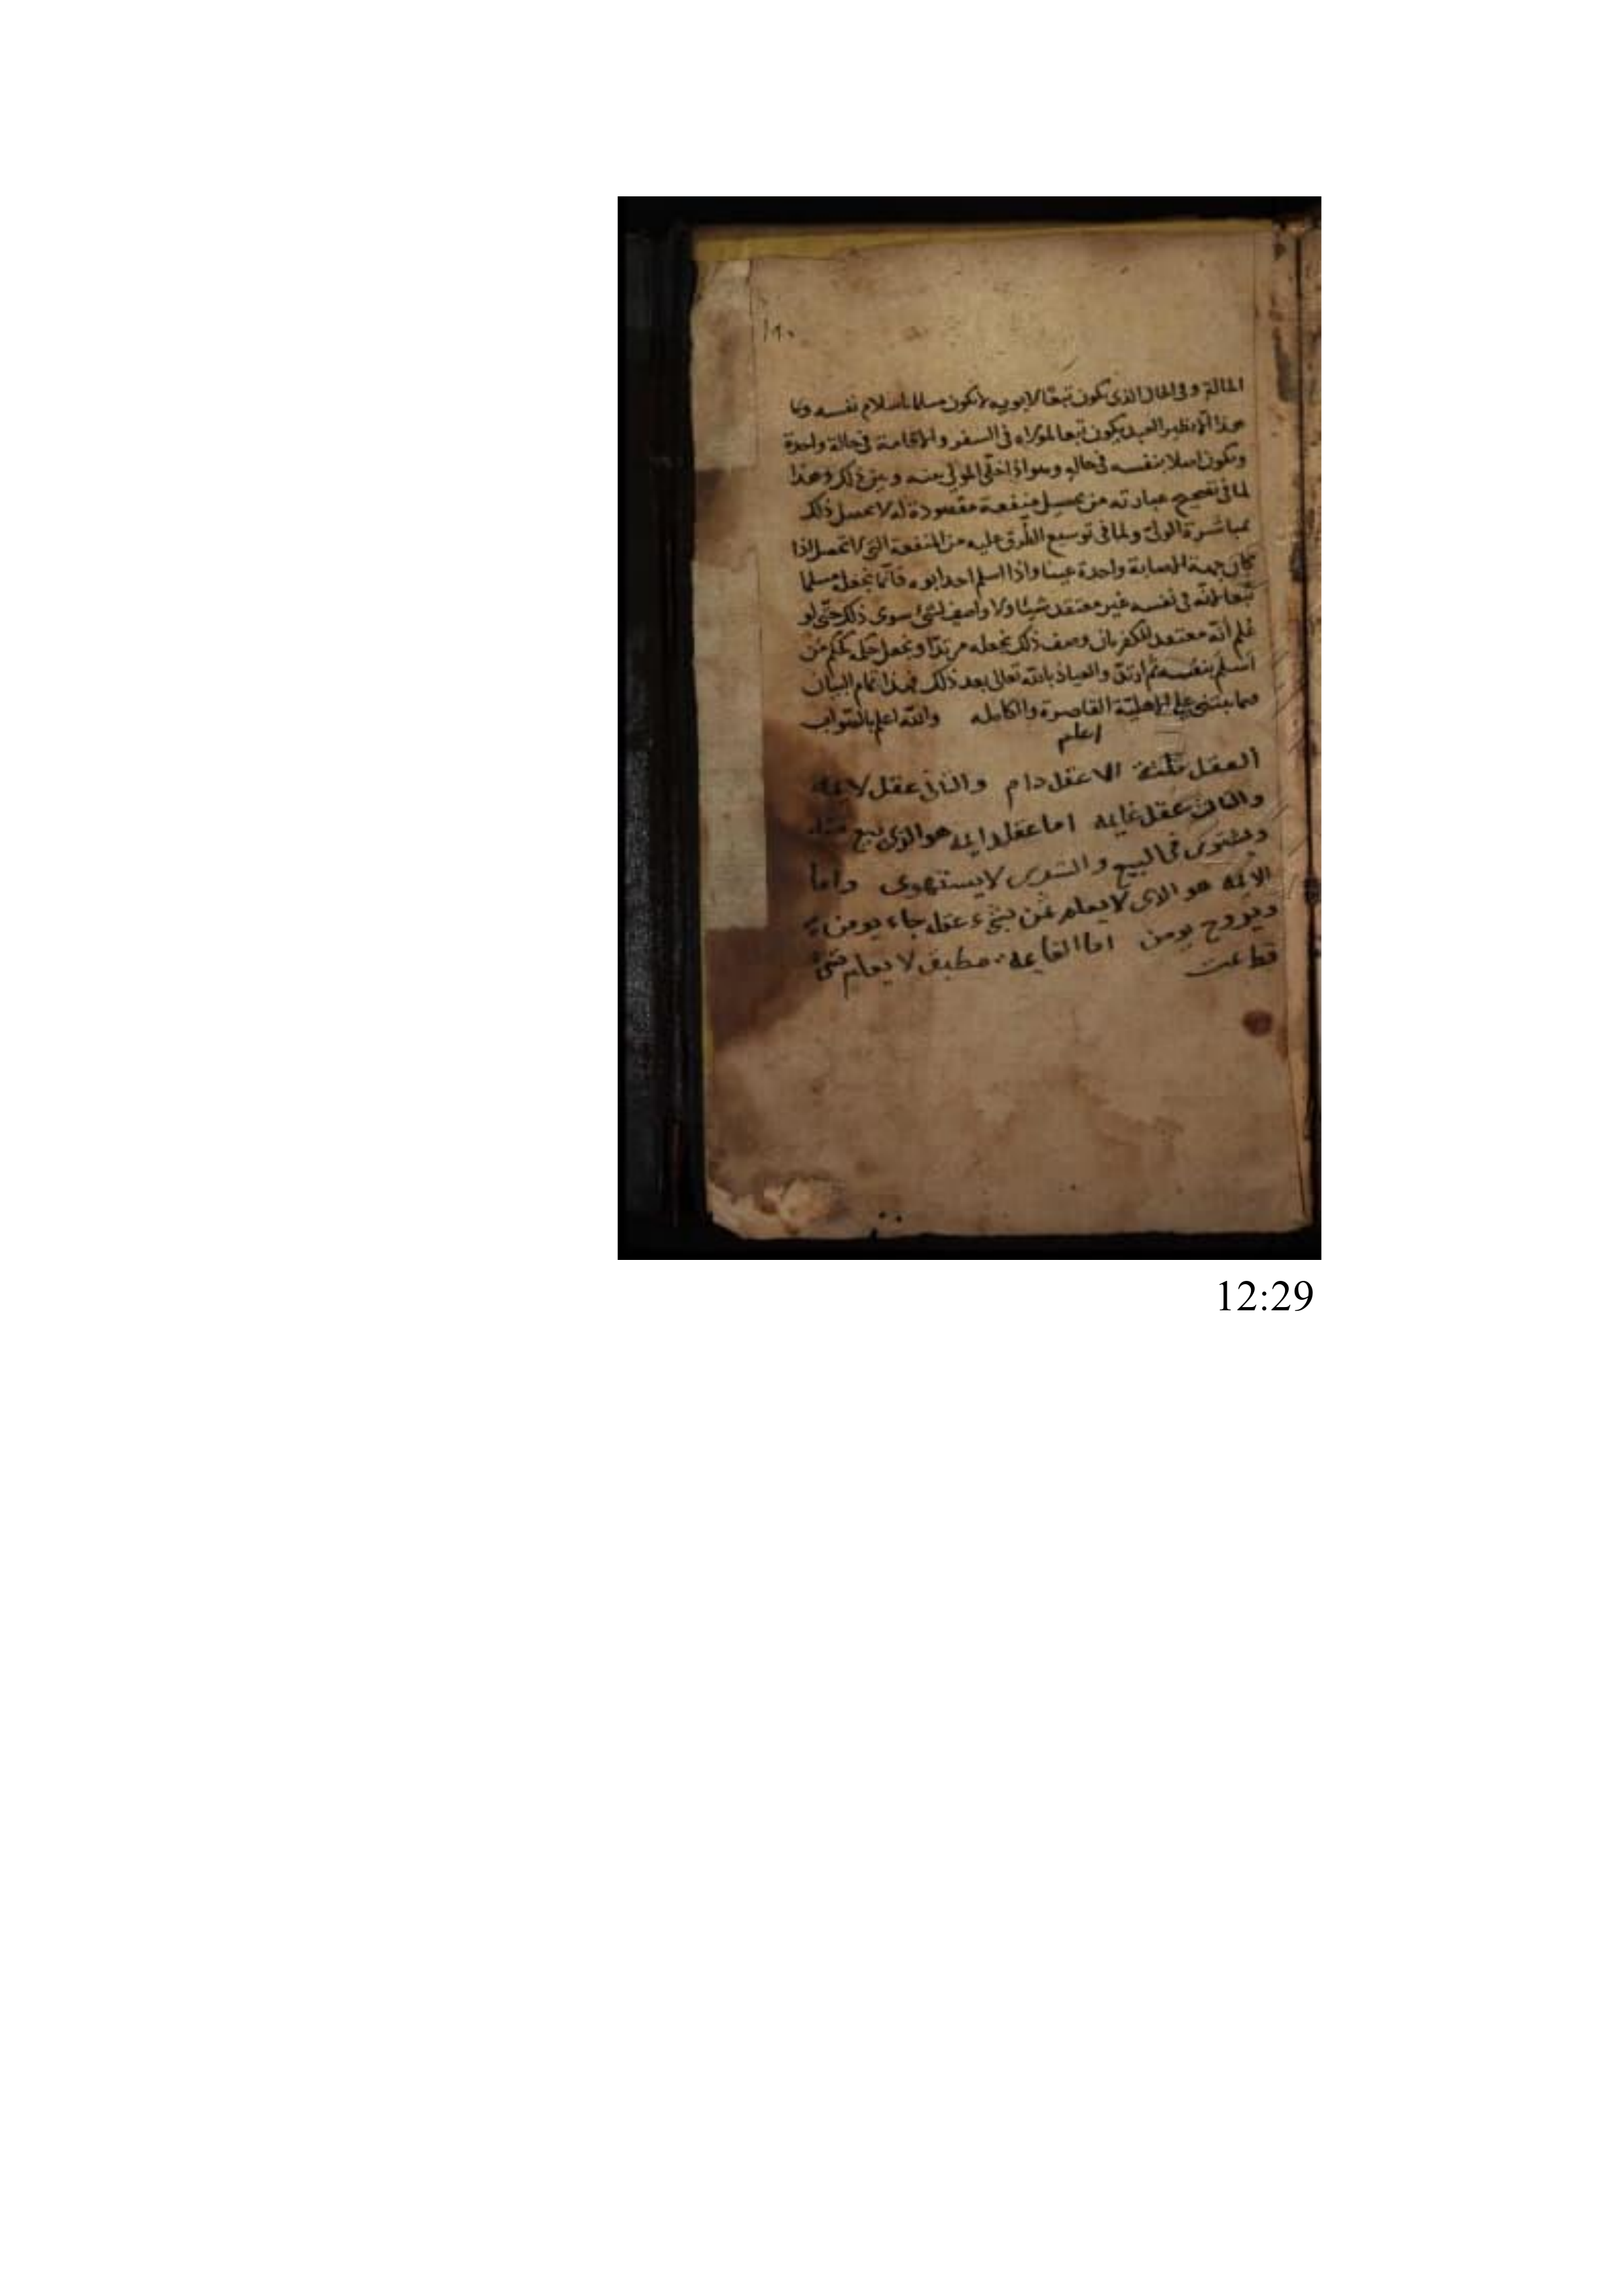 ١٩٠
الحالة وفي الحال الذي يكون تبعا لابويه لا يكون مسلما باسلام نفسه وما
هذا الا نظير العبد يكون تبعا لمولاه في السفر والاقامة في حالة واحدة
ويكون اصلا بنفسه في حالة وهو اذا خلى المولى بينه وبين ذلك وهذا
لما في تصحيح عبارته من تحصيل منفعة مقصودة له لا تحصل ذلك
بمباشرة الولي ولما في توسيع الطرق عليه من المنفعة التي لا تحصل اذا
كان جهة الاصابة واحدة عينا واذا اسلم احد ابويه فانما نجعله مسلما
تبعا لانه في نفسه غير معتقد شيئا ولا واصف لشئ سوى ذلك حتى لو
علم انه معتقد للكفر بان وصف ذلك نجعله مرتدا ونجعل حكمه كحكم من
اسلم بنفسه ثم ارتد والعياذ بالله تعالى بعد ذلك فهذا تمام البيان
فيما يبتنى على الاهلية القاصرة والكامله والله اعلم بالصواب
اعلم
العقل ثلثة الا عقل دام والثاني عقل لا
والثالث عقل غايه اما عقل دايمه هو الذي
في البيع والشرى لا يستهوى واما
هو الاى لا يعلم عن شىء عقل جاء يومن
ويروح يومن اما لا يعلم شئ
قطاعت
12:29